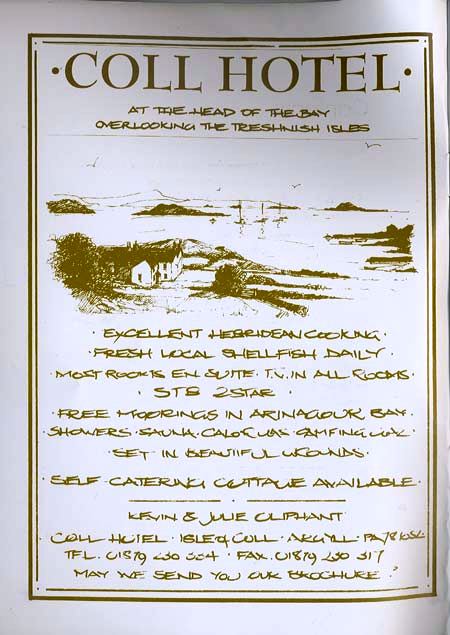 · COLL HOTEL ·
AT THE HEAD OF THE BAY
OVERLOOKING THE TRESHNISH ISLES
· EXCELLENT HEBRIDEAN COOKING ·
· FRESH LOCAL SHELLFISH DAILY ·
· MOST ROOMS EN SUITE · T.V. IN ALL ROOMS ·
· STB 2 STAR ·
· FREE MOORINGS IN ARINAGOUR BAY ·
· SHOWERS · SAUNA · CALOR GAS · CAMPING GAZ ·
· SET IN BEAUTIFUL GROUNDS ·
· SELF CATERING COTTAGE AVAILABLE ·
KEVIN & JULIE OLIPHANT
COLL HOTEL · ISLE OF COLL · ARGYLL · PA78
TEL. 01879 230 334 · FAX. 01879 230 317
MAY WE SEND YOU OUR BROCHURE?